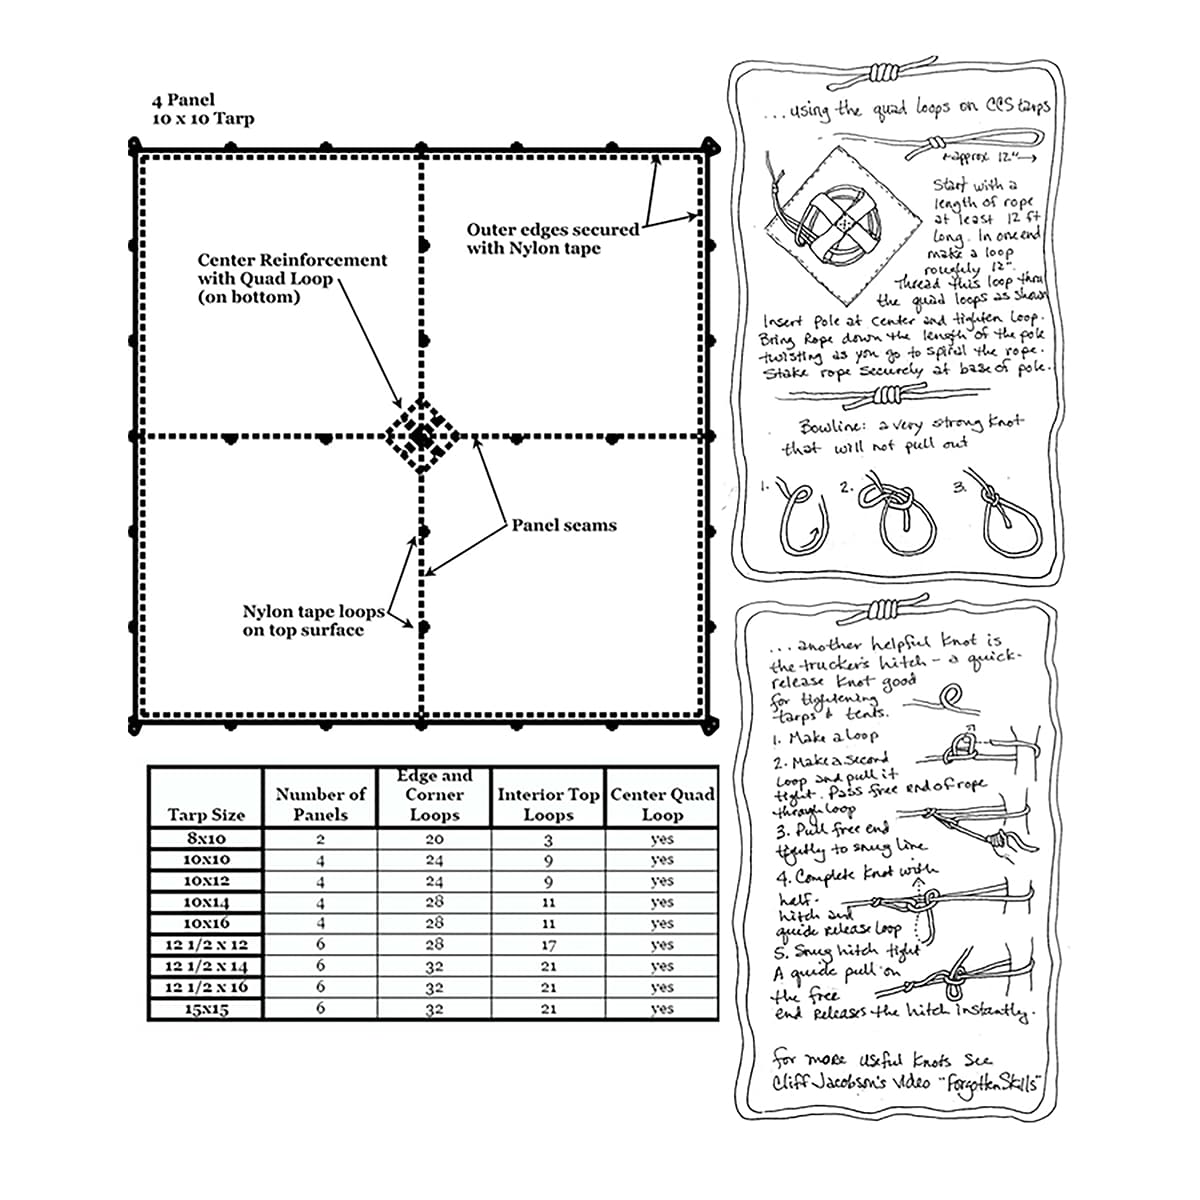 4 Panel
10 x 10 Tarp
Outer edges secured
with Nylon tape
Center Reinforcement
with Quad Loop
(on bottom)
Panel seams
Nylon tape loops
on top surface
Tarp Size | Number of Panels | Edge and Corner Loops | Interior Top Loops | Center Quad Loop
8x10 | 2 | 20 | 3 | yes
10x10 | 4 | 24 | 9 | yes
10x12 | 4 | 24 | 9 | yes
10x14 | 4 | 28 | 11 | yes
10x16 | 4 | 28 | 11 | yes
12 1/2 x 12 | 6 | 28 | 17 | yes
12 1/2 x 14 | 6 | 32 | 21 | yes
12 1/2 x 16 | 6 | 32 | 21 | yes
15x15 | 6 | 32 | 21 | yes
...using the quad loops on CCS tarps
approx 12"
Start with a
length of rope
at least 12 ft
long. In one end
make a loop
roughly 12".
Thread this loop thru
the quad loops as shown
Insert Pole at center and tighten loop.
Bring Rope down the length of the pole
twisting as you go to spiral the rope.
Stake rope securely at base of pole.
Bowline: a very strong knot
that will not pull out
1. 2. 3.
...another helpful knot is
the trucker's hitch - a quick-
release knot good
for tightening
tarps & tents.
1. Make a loop
2. Make a second
loop and pull it
tight. Pass free end of rope
through loop
3. Pull free end
tightly to snug line
4. Complete knot with
half-
hitch and
quick release loop
5. Snug hitch tight
A quick pull on
the free
end releases the hitch instantly.
for more useful knots see
Cliff Jacobson's video "Forgotten Skills"